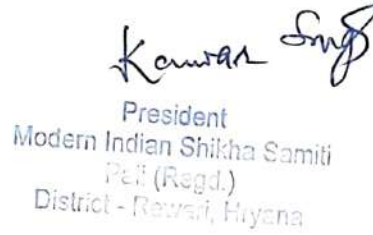 Kanwar Singh
President
Modern Indian Shikha Samiti
Pali (Regd.)
District - Rewari, Hryana